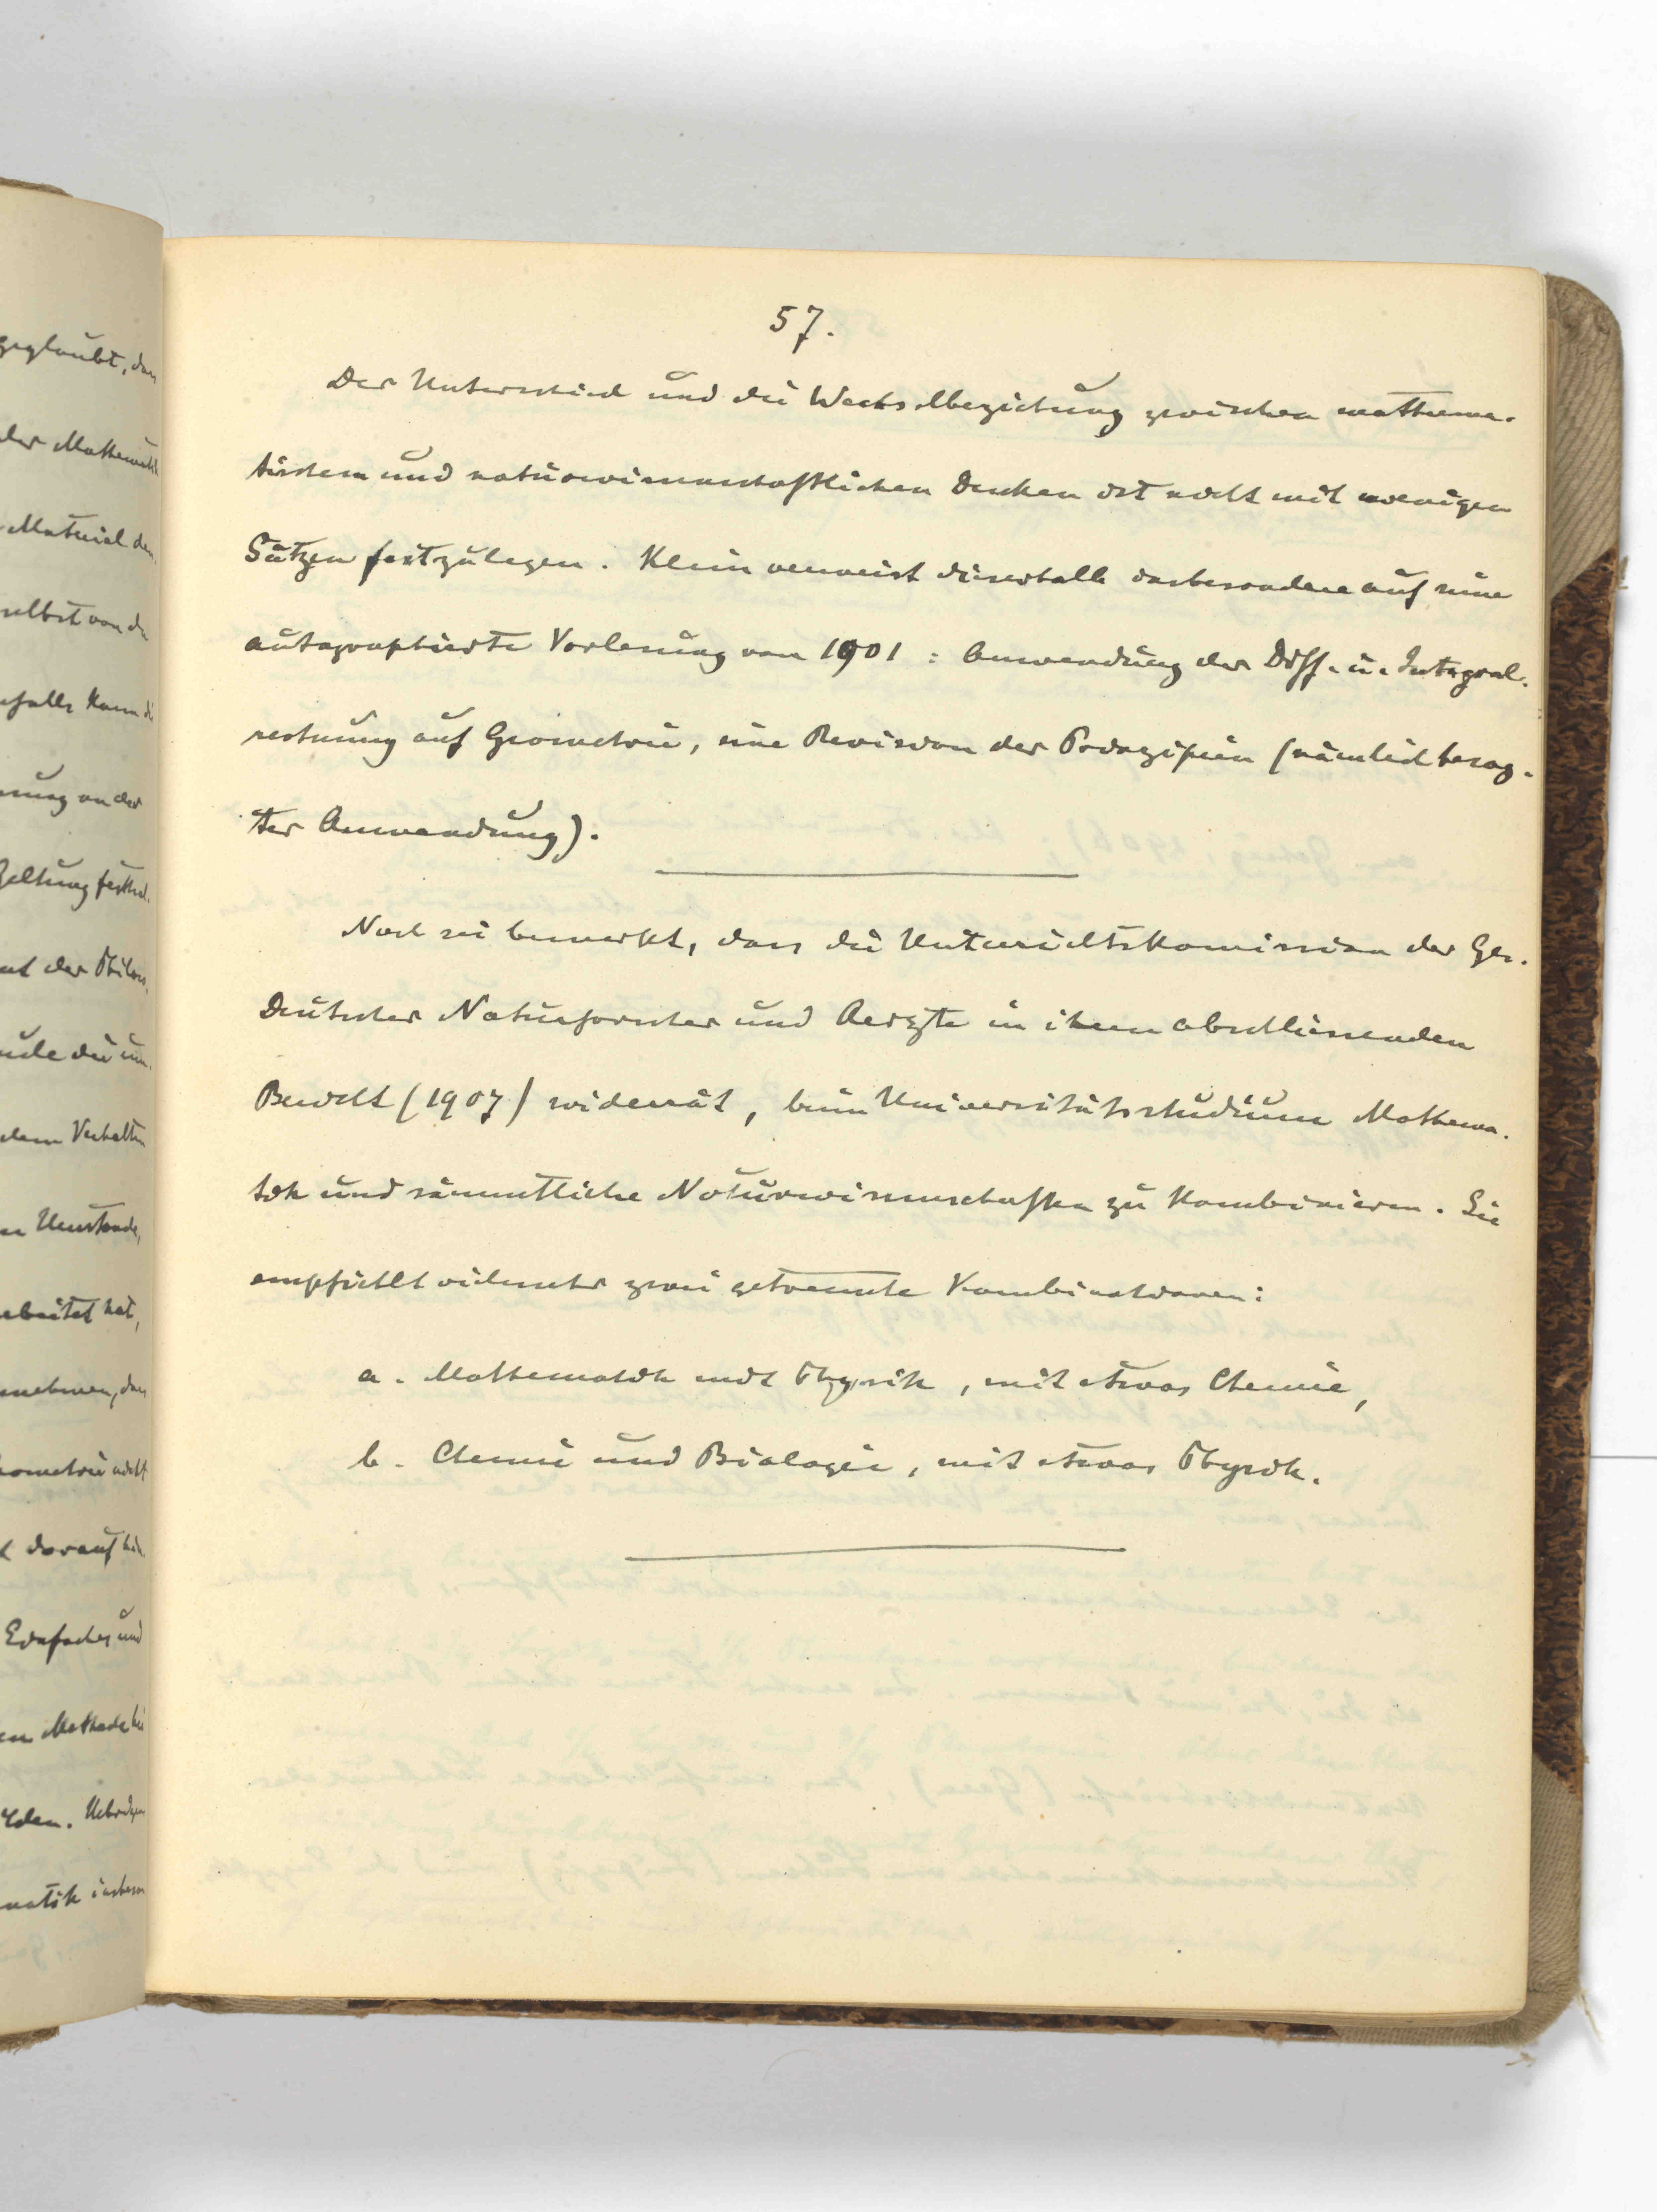 57.
Der Unterschied und die Wechselbeziehung zwischen mathema-
tischem und naturwissenschaftlichen Denken ist nicht mit wenigen
Sätzen festzulegen. Klein verweist dieserhalb insbesondere auf seine
autographierte Vorlesung von 1901: Anwendung der Diff.- u. Integral-
rechnung auf Geometrie, eine Revision der Prinzipien (nämlich besag-
ter Anwendung).
Noch sei bemerkt, dass die Unterrichtskomission der Ges.
Deutscher Naturforscher und Aerzte in ihrem abschliessenden
Bericht (1907) widerrät, beim Universitätsstudium Mathema-
tik und sämmtliche Naturwissenschaften zu kombinieren. Sie
empfiehlt vielmehr zwei getrennte Kombinationen:
a. Mathematik und Physik, mit etwas Chemie,
b. Chemie und Biologie, mit etwas Physik.
geglaubt, dass
der Mathematik
Material den
selbst von der
falls kann die
an der
Geltung festhal-
der Philos.
die
dem Verhalten
Umstande,
arbeitet hat,
annehmen, dass
nicht
darauf hin-
Einfaches und
Methode bei
den. Uebrigens
matik insbeson